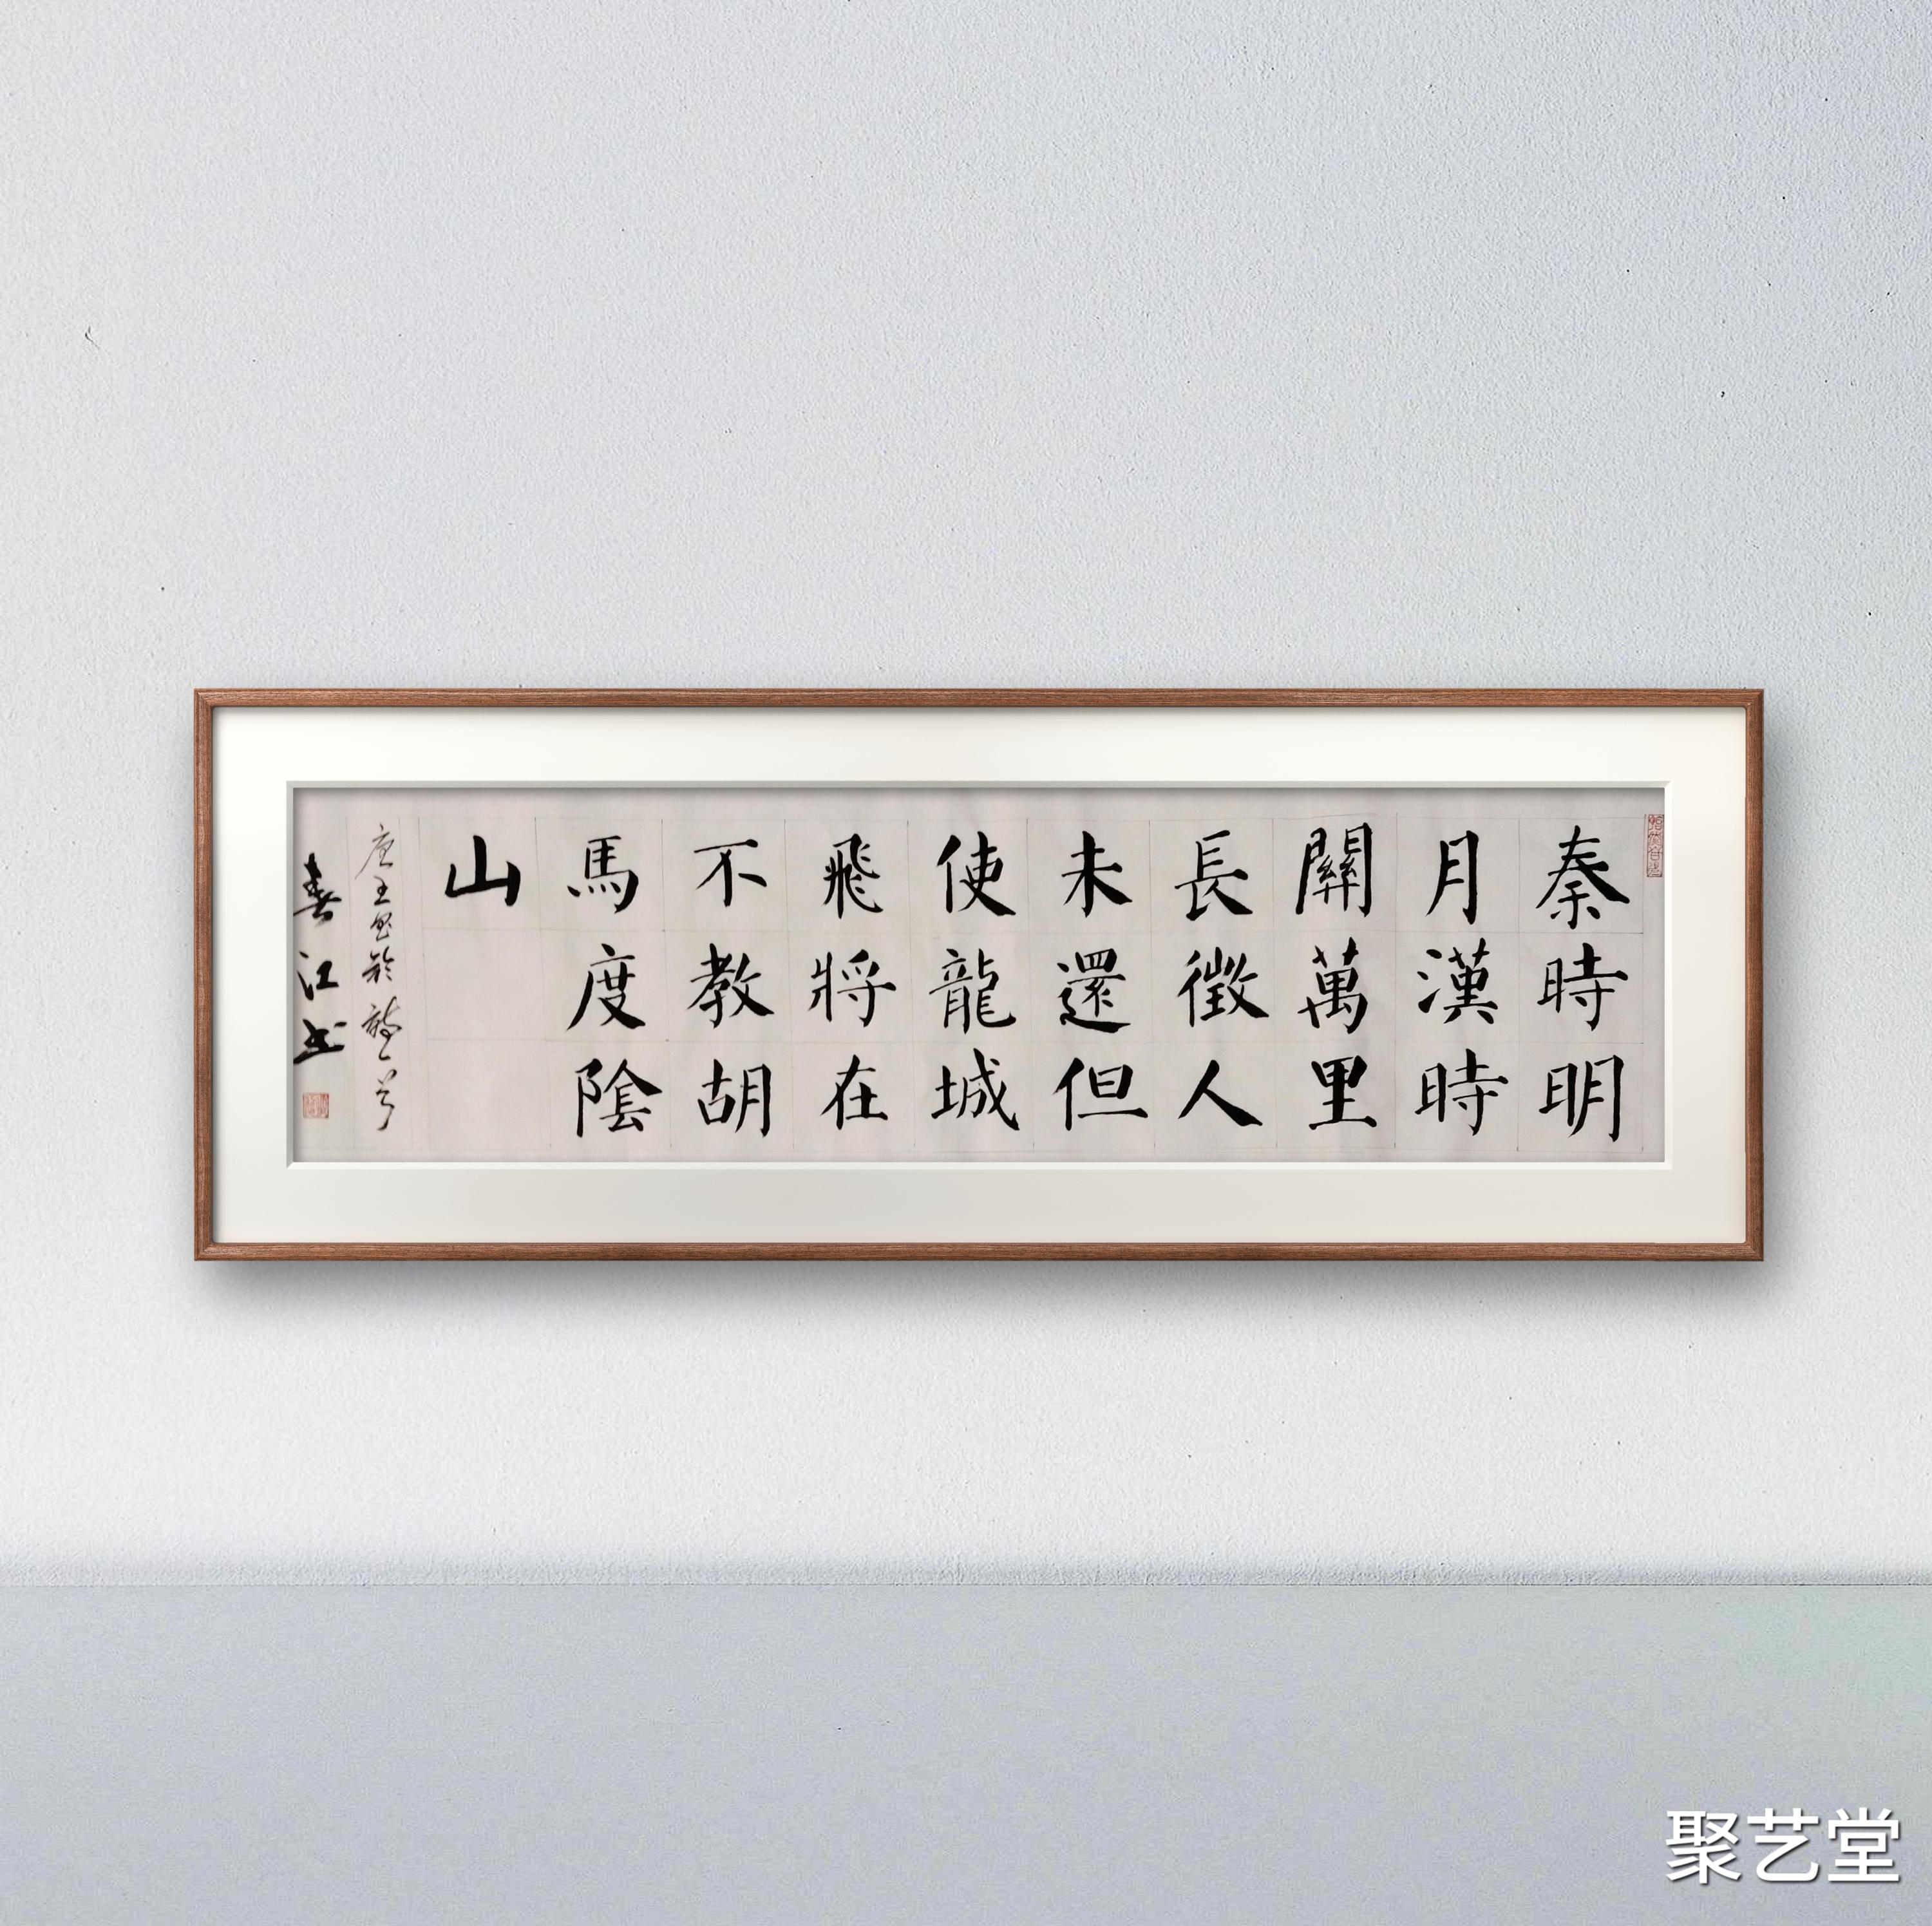 秦時明
月漢時
關萬里
長徵人
未還但
使龍城
飛將在
不教胡
馬度陰
山
唐王昌齡詩一首
春江书
聚艺堂